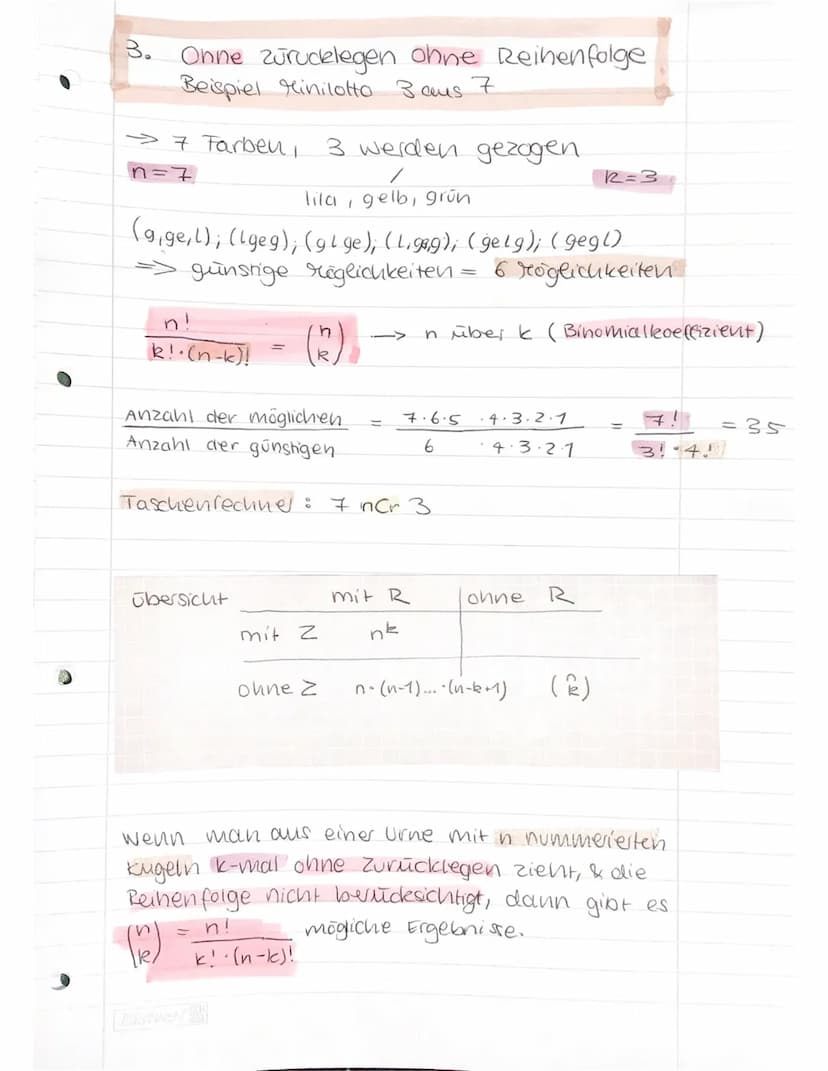 3. Ohne zurücklegen ohne Reihenfolge
Beispiel Minilotto 3 aus 7
→ 7 Farben, 3 werden gezogen
n=7 / k=3
lila, gelb, grün
(g,ge,l); (lgeg); (glge); (l,gge); (gelg); (gegl)
=> günstige Möglichkeiten = 6 Möglichkeiten
n! / k!·(n-k)! = (n k) → n über k (Binomialkoeffizient)
Anzahl der möglichen / Anzahl der günstigen = 7·6·5 ·4·3·2·1 / 6 ·4·3·2·1 = 7! / 3!·4! = 35
Taschenrechner: 7 nCr 3
Übersicht mit R ohne R
mit Z n^k
ohne Z n·(n-1)...·(n-k+1) (n k)
wenn man aus einer Urne mit n nummerierten
Kugeln k-mal ohne zurücklegen zieht, & die
Reihenfolge nicht berücksichtigt, dann gibt es
(n k) = n! / k!·(n-k)! mögliche Ergebnisse.